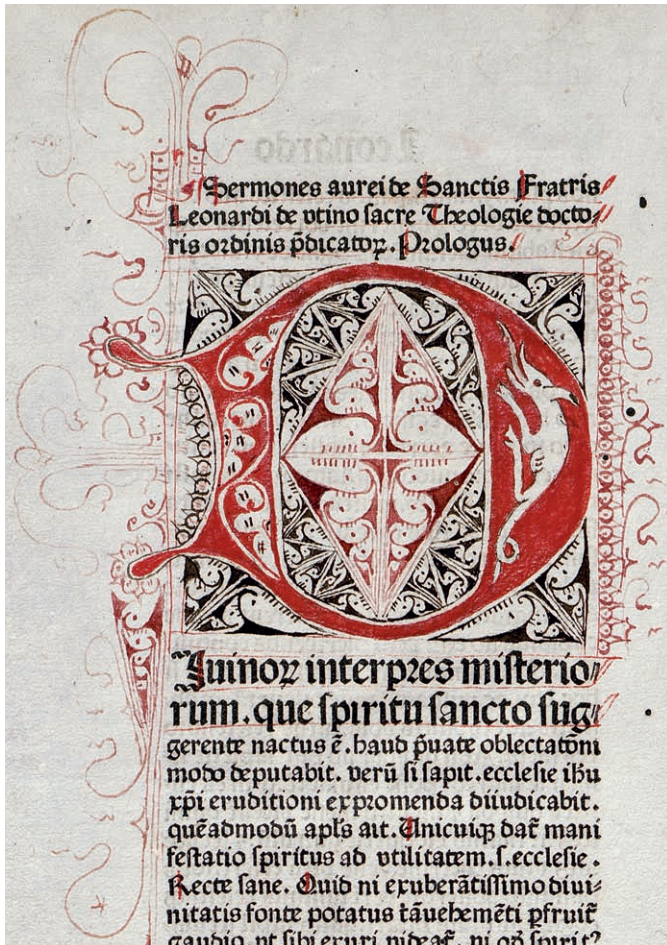 Leonardo
Sermones aurei de Sanctis Fratris
Leonardi de vtino sacre Theologie docto⸗
ris ordinis p̄dicatoꝝ. Prologus.
D
Iuinoꝝ interpres misterio⸗
rum. que spiritu sancto sug⸗
gerente nactus ē. haud p̄uate oblectatōni
modo deputabit. verū si sapit. ecclesie ih̄u
xp̄i eruditioni expromenda diiudicabit.
quēadmodū apl̄s ait. Unicuiqꝫ dat᷑ mani
festatio spiritus ad vtilitatem. s. ecclesie.
Recte sane. Quid ni exuberātissimo diui⸗
nitatis fonte potatus tā uehemēti ꝑfruit᷑
gaudio. vt sibi